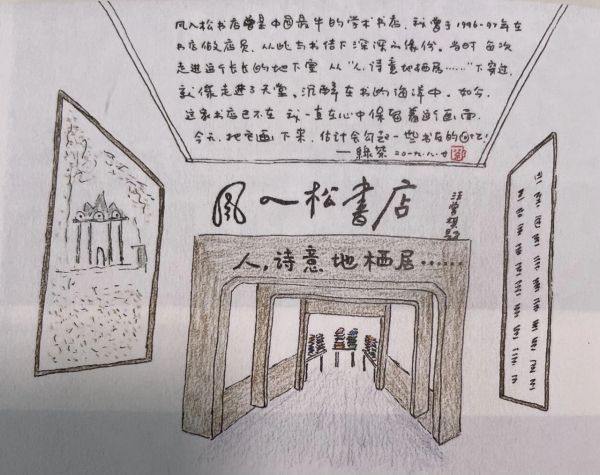 风入松书店曾是中国最牛的学术书店，我曾于1996-97年在
书店做店员，从此与书结下深深的缘份。当时每次
走进这个长长的地下室 从“人，诗意地栖居……”下穿过，
就像走进了天堂。沉醉在书的海洋中。如今，
这家书店已不在 我一直在心中保留着这个画面，
今天，把它画下来，估计会勾起一些书友的回忆！
风入松书店
人，诗意地栖居……